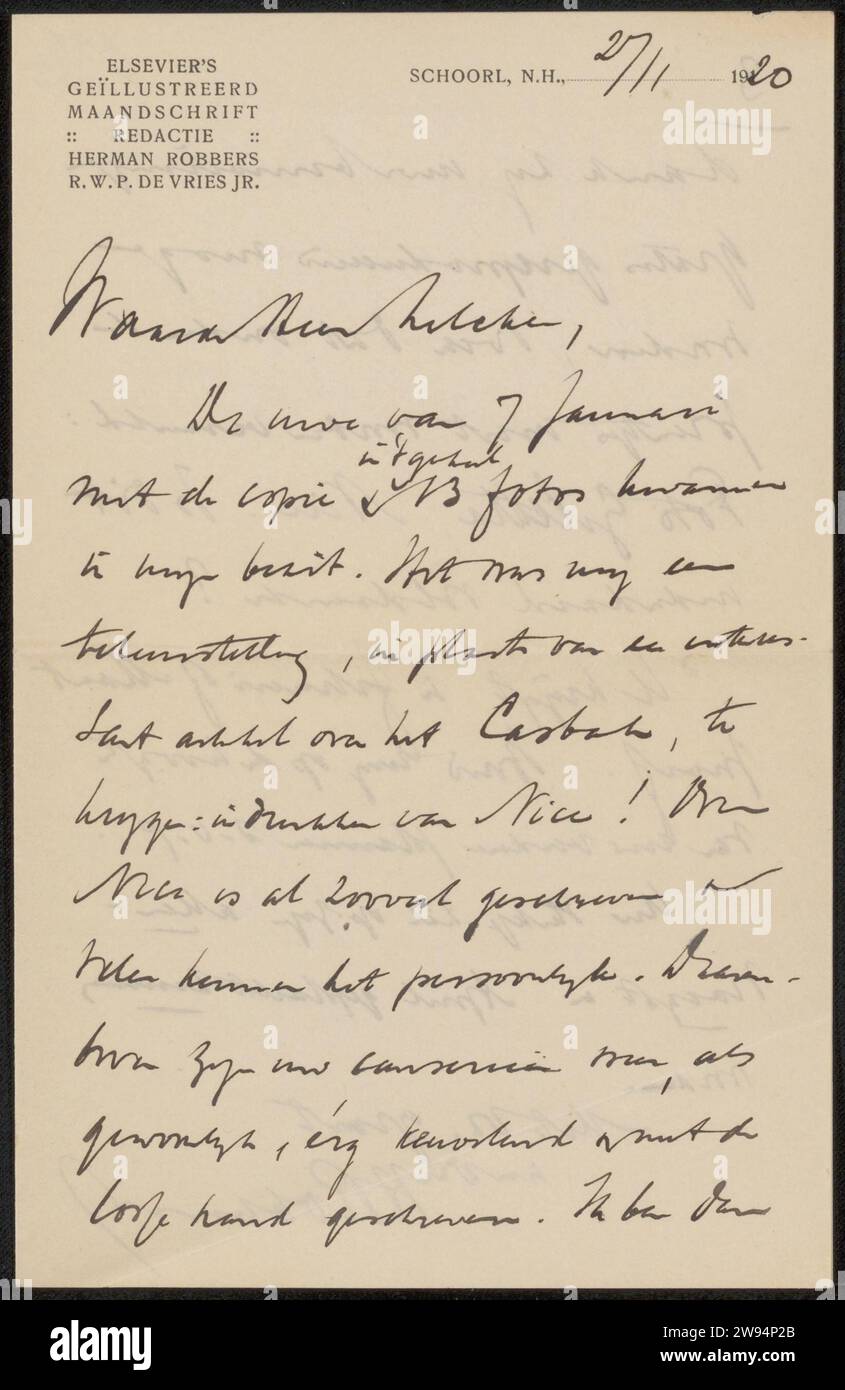 ELSEVIER'S
GEÏLLUSTREERD
MAANDSCHRIFT
:: REDACTIE ::
HERMAN ROBBERS
R. W. P. DE VRIES JR.
SCHOORL, N.H., 27/11 1920
Waarde Heer Zilcken,
De uwe van 7 Januari
met de copie & 13 fotos kwamen
in mijn bezit. Het was mij een
teleurstelling, in plaats van een interes-
sant artikel over het Casbah, te
krijgen: indrukken van Nice! Over
Nice is al zooveel geschreven en
velen kennen het persoonlijk. Daaren-
boven zijn uw causerieën over, als
gewoonlijk, érg keuvelend & met de
losse hand geschreven. Ik ben dan
alamy
Image ID: 2W94P2B
www.alamy.com